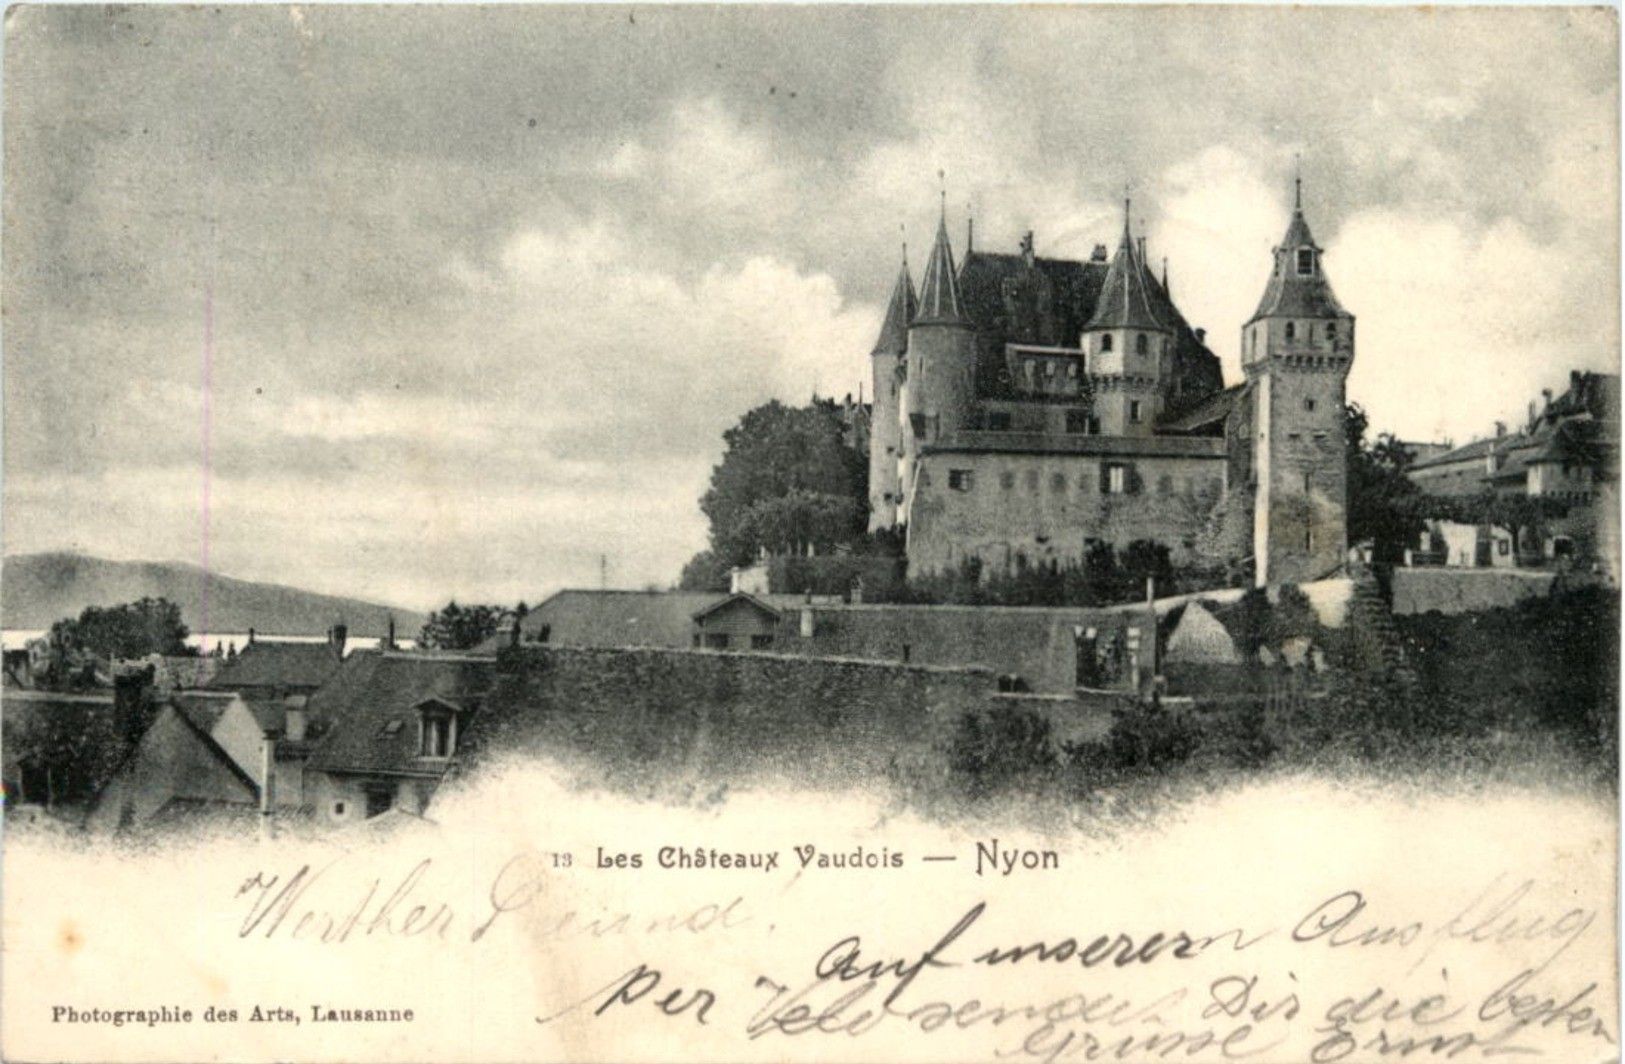 13 Les Châteaux Vaudois — Nyon
Werther Freund!
Auf unserem Ausflug
per Velo sendet Dir die besten
Grüsse Ernst
Photographie des Arts, Lausanne